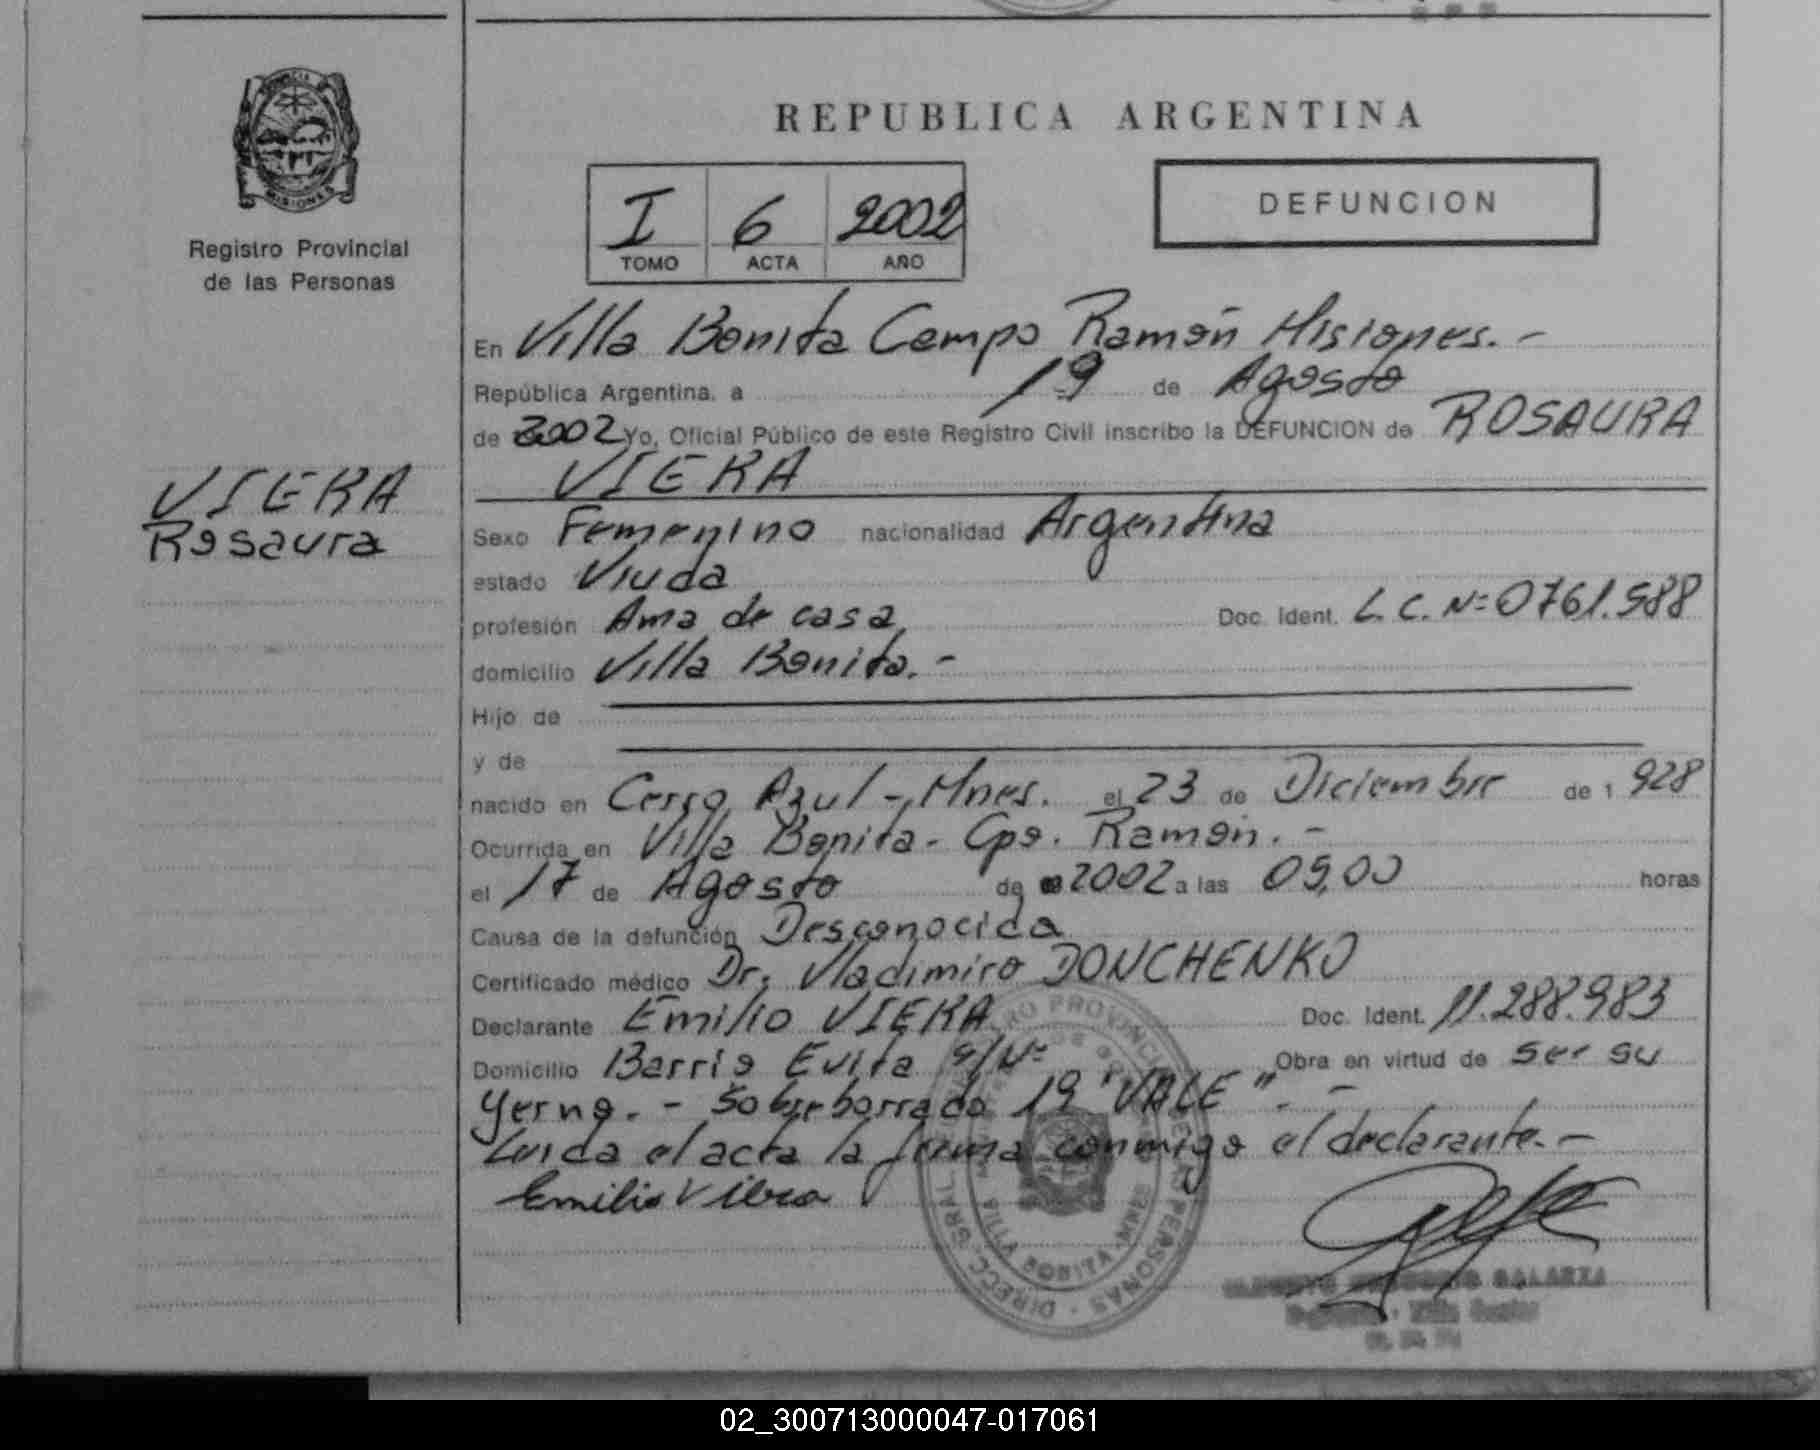 REPUBLICA ARGENTINA
MISIONES
Registro Provincial
de las Personas
I 6 2002
TOMO ACTA AÑO
DEFUNCION
En Villa Bonita Campo Ramón Misiones.-
República Argentina, a 19 de Agosto
de 2002 Yo, Oficial Público de este Registro Civil inscribo la DEFUNCION de ROSAURA
VIERA
VIERA
Rosaura
Sexo Femenino nacionalidad Argentina
estado Viuda
profesión Ama de casa Doc. Ident. L.C. Nº 0761.588
domicilio Villa Bonita.-
Hijo de
y de
nacido en Cerro Azul-Mnes. el 23 de Diciembre de 1 928
Ocurrida en Villa Bonita- Cpo. Ramón.-
el 17 de Agosto de 2002 a las 05,00 horas
Causa de la defunción Desconocida
Certificado médico Dr. Vladimiro DONCHENKO
Declarante Emilio VIERA Doc. Ident. 11.288.983
Domicilio Barrio Evita s/Nº Obra en virtud de ser su
yerno.- Sobreborrado 19 "VALE".-
Leida el acta la firma conmigo el declarante.-
Emilio Viera
GALARZA
VILLA BONITA - MNES
02_300713000047-017061